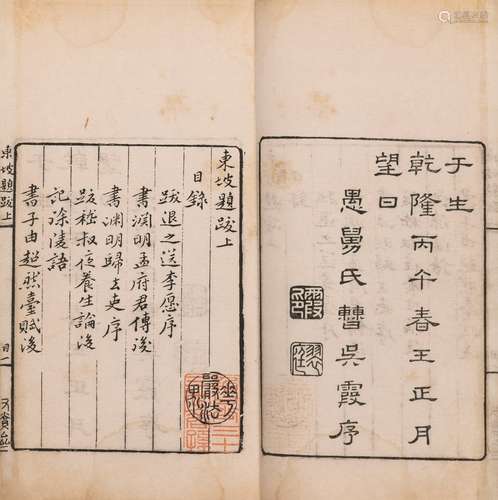 于生
乾隆丙午春王正月
望日
愚舅氏瞽吳霞序
東坡題跋上
目錄
跋退之送李愿序
書淵明孟府君傳後
書淵明歸去來序
跋嵇叔夜養生論後
記徐陵語
書子由超然臺賦後
東坡題跋上
目二